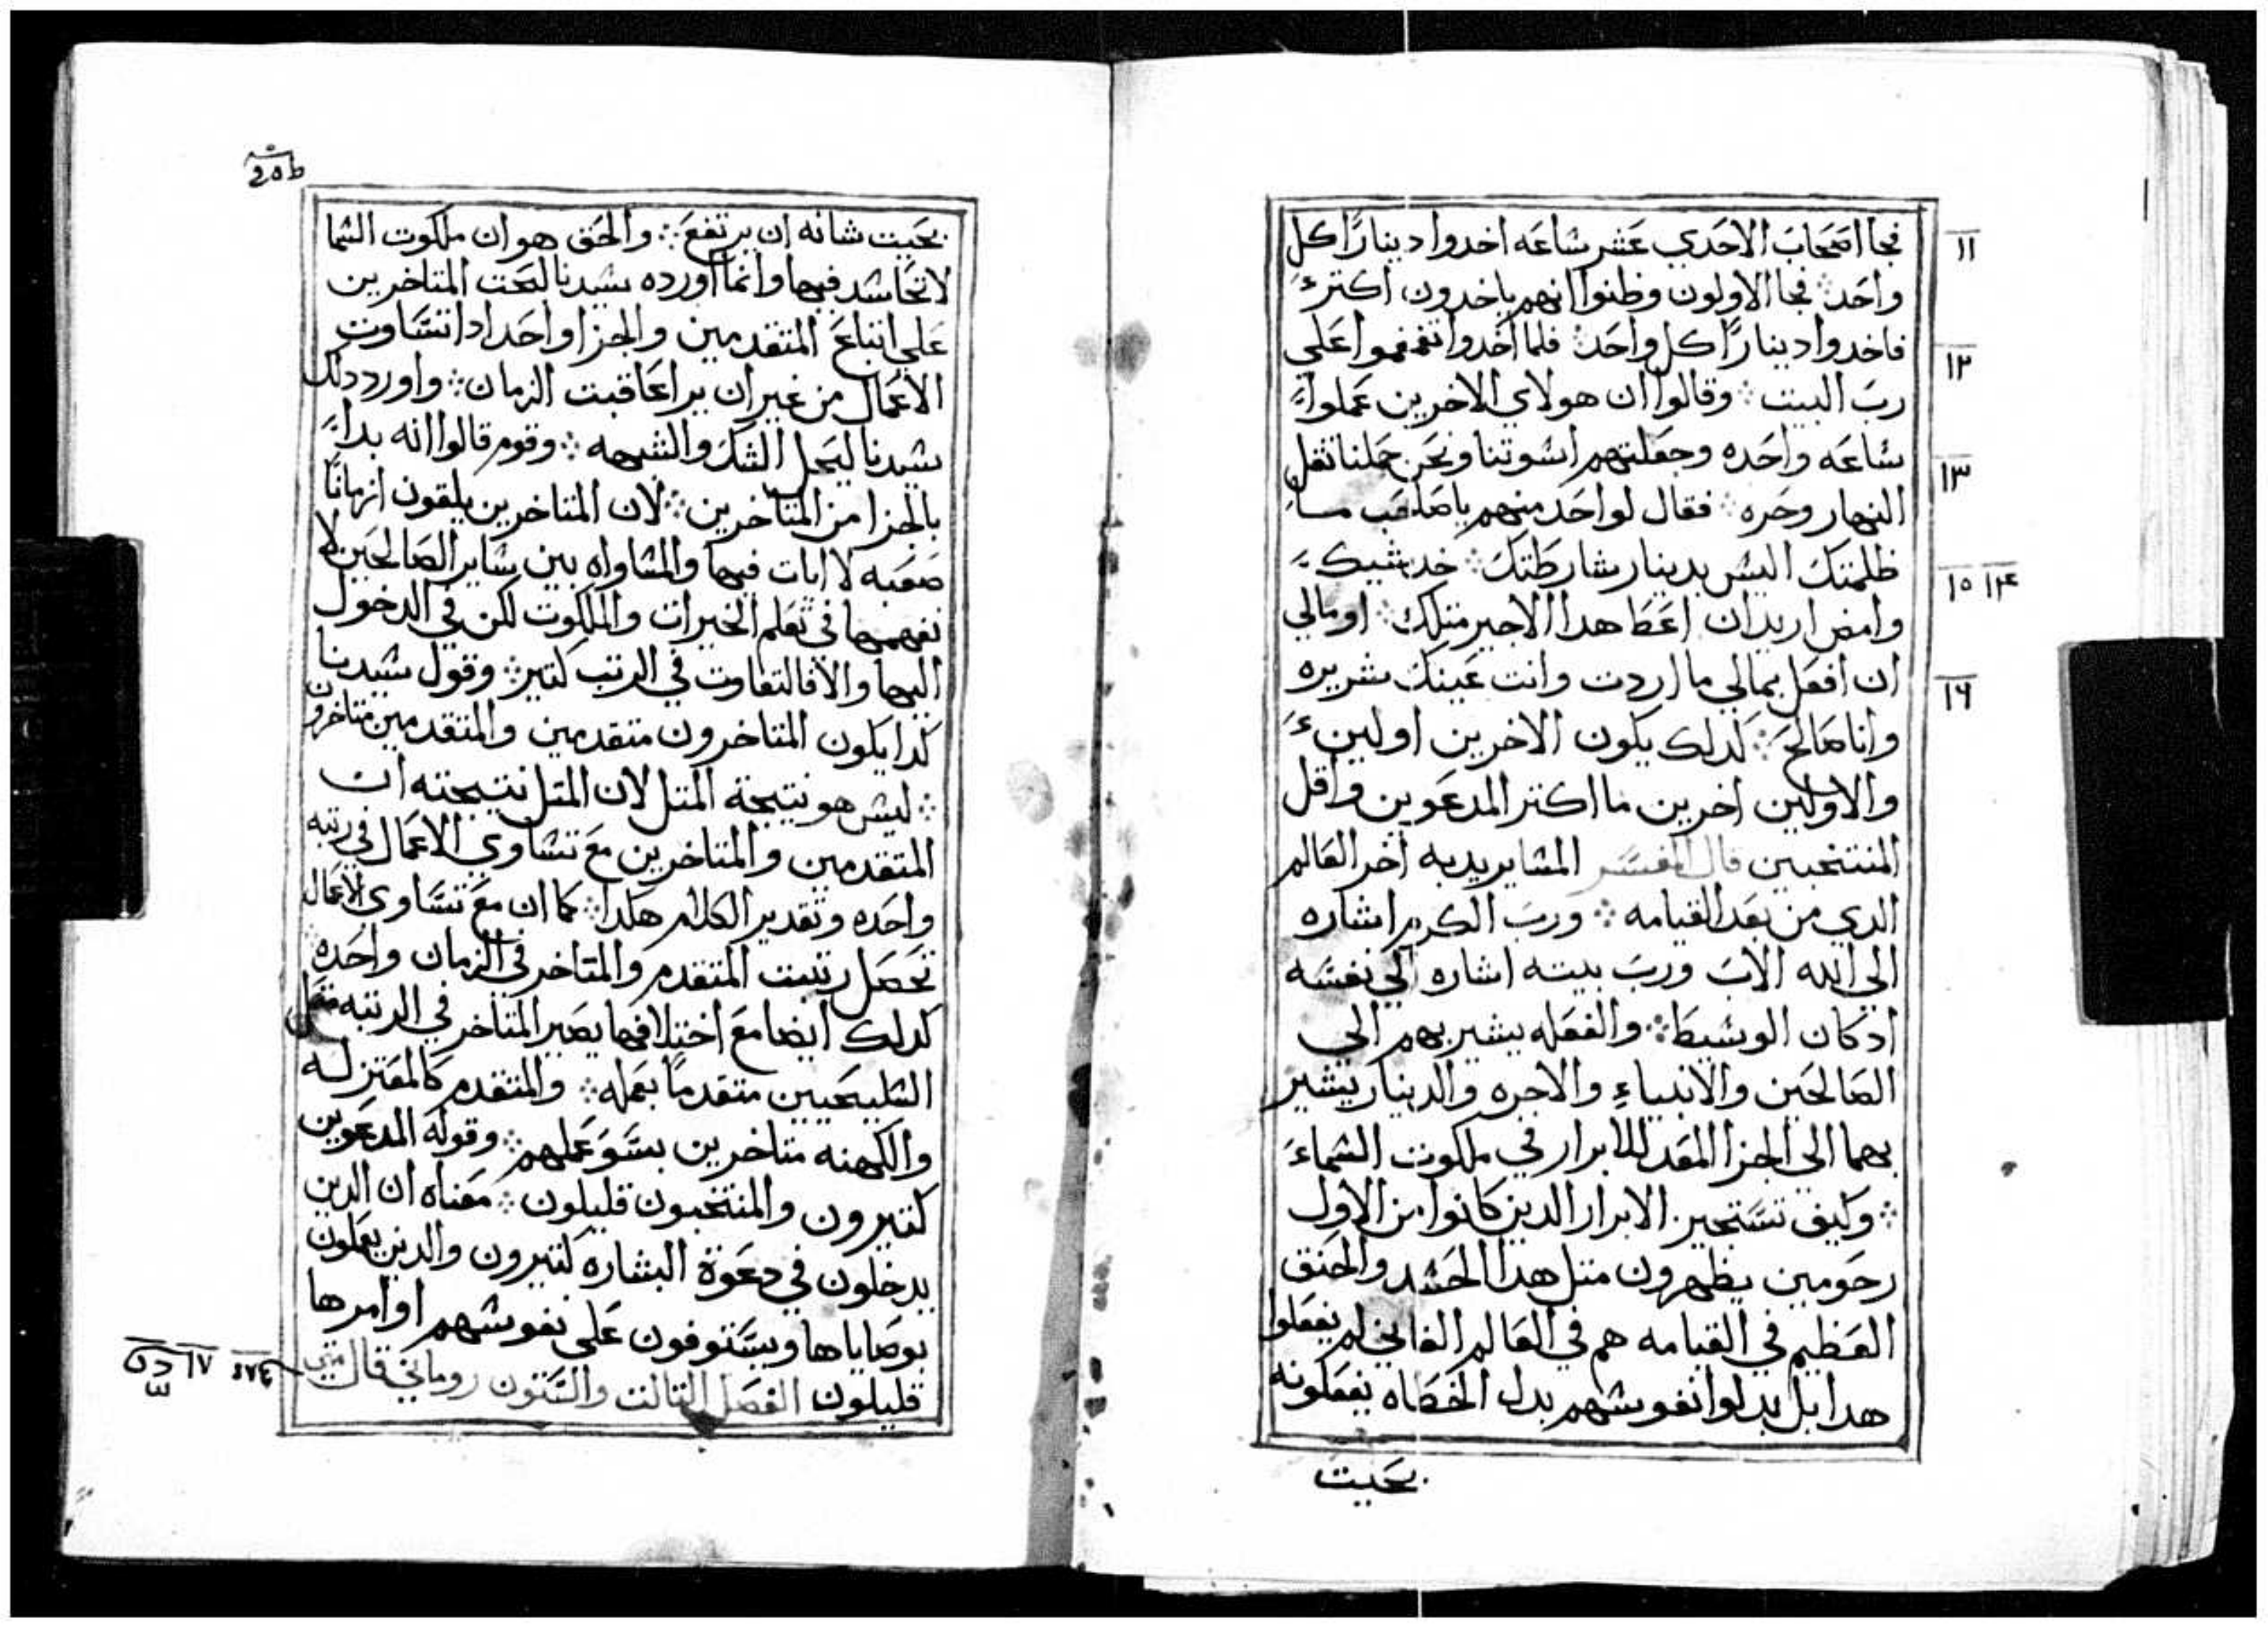 فجا اصحاب الاحدي عشر ساعه اخدوا دينارًا كل
واحد ܀ فجا الاولون وظنوا انهم ياخدون اكتر
فاخدوا دينارًا كل واحد ܀ فلما اخدوا تقمقموا علي
رب البيت ܀ وقالوا ان هولاي الاخرين عملوا
ساعه واحده وجعلتهم اسوتنا ونحن حملنا تقل
النهار وحره ܀ فقال لواحد منهم ياصاحب ما
ظلمتك اليس بدينار شارطتك ܀ خد شيك
وامض اريد ان اعطا هدا الاجير متلك ܀ اومالي
ان افعل بمالي ما اردت وانت عينك شريره
وانا صالح ܀ لدلك يكون الاخرين اولين
والاولين اخرين ما اكتر المدعوين واقل
المنتخبين قال المفسر المسا يريد به اخر العالم
الدي من بعد القيامه ܀ ورب الكرم اشاره
الي الله الاب ورب بيته اشاره الي نفسه
ادكان الوسيط ܀ والفعله يشير بهم الي
الصالحين والانبياء والاجره والدينار يشير
بهما الي الجزا المعد للابرار في ملكوت السماء
܀ وكيف تستجير الابرار الدين كانوا من الاول
رحومين يظهرون متل هدا الحسد والحنق
العظيم في القيامه هم في العالم الفاني لم يفعلوا
هدا بل بدلوا نفوسهم بدل الخطاه يفعلونه
بحيت
١١
١٢
١٣
١٤ ١٥
١٦
بحيت شانه ان يرتفع ܀ والحق هو ان ملكوت السما
لا تحاسد فيها وانما اورده سيدنا لبحت المتاخرين
علي اتباع المتقدمين والجزا واحد ادا تساوت
الاعمال من غير ان يراعا قبت الزمان ܀ واورد دلك
سيدنا ليحل الشك والشبهه ܀ وقوم قالوا انه بدا
بالجزا من المتاخرين ܀ لان المتاخرين يلقون ازمانًا
صعبه لا ايات فيها والمساواه بين ساير الصالحين لا
نفهمها في تعلم الخيرات والملكوت لكن في الدخول
اليها والا فالتفاوت في الرتب كتير ܀ وقول سيدنا
كدا يكون المتاخرون متقدمين والمتقدمين متاخرون
܀ ليس هو نتيجة المتل لان المتل نتيجته ان
المتقدمين والمتاخرين مع تساوي الاعمال في رتبه
واحده وتقدير الكلام هكدا ܀ كما ان مع تساوي الاعمال
تحصل رتبت المتقدم والمتاخر في الزمان واحده
كدلك ايضا مع اختلافها يصير المتاخر في الرتبه متل
السليحيين متقدمًا بعمله ܀ والمتقدم كالمعتزله
والكهنه متاخرين بسو عملهم ܀ وقوله المدعوين
كتيرون والمنتخبون قليلون ܀ معناه ان الدين
يدخلون في دعوة البشاره كتيرون والدين يعملون
بوصاياها ويستوفون علي نفوسهم اوامرها
قليلون الفصل التالت والستون روماني قال متي
١٧